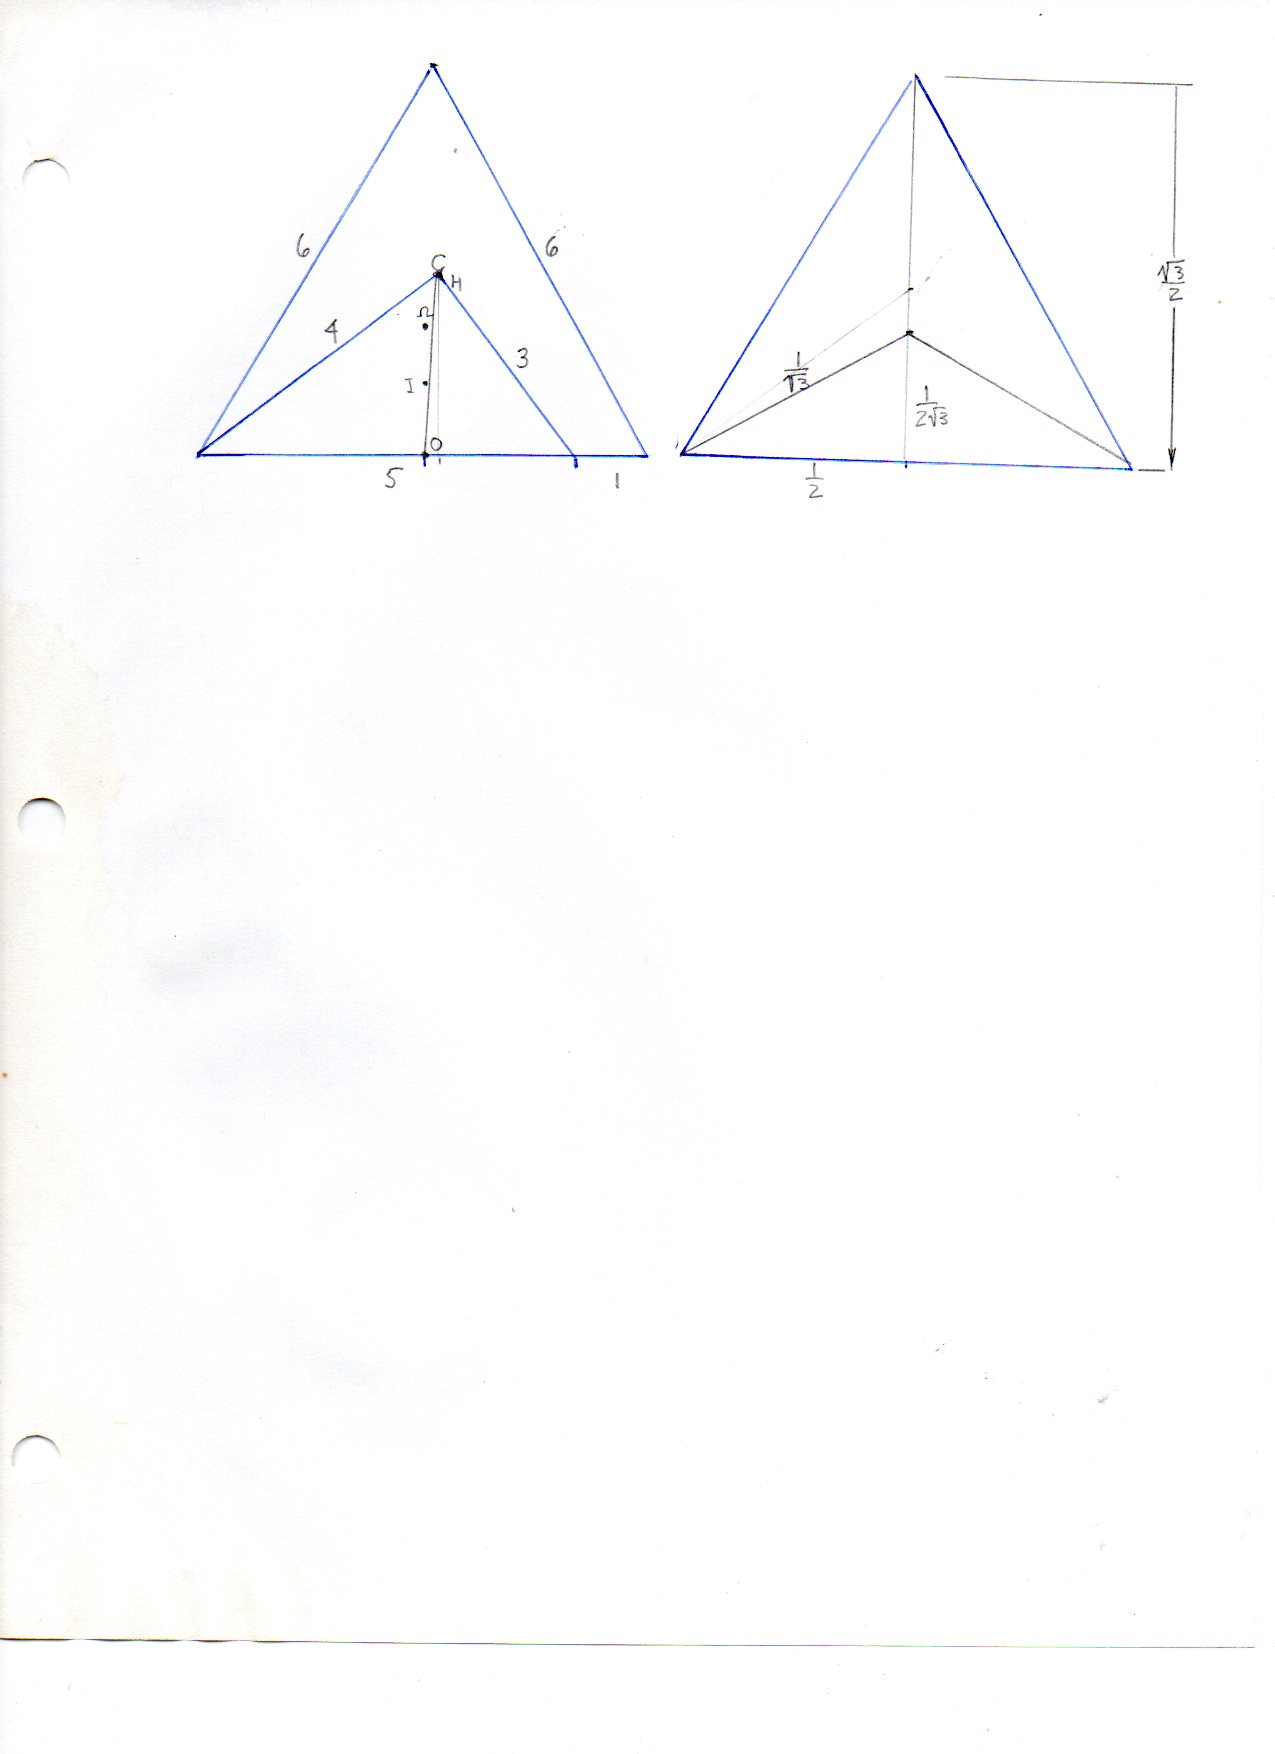 6
6
C
H
Ω
4
3
I
O
5
1
√3/2
1/√3
1/2√3
1/2